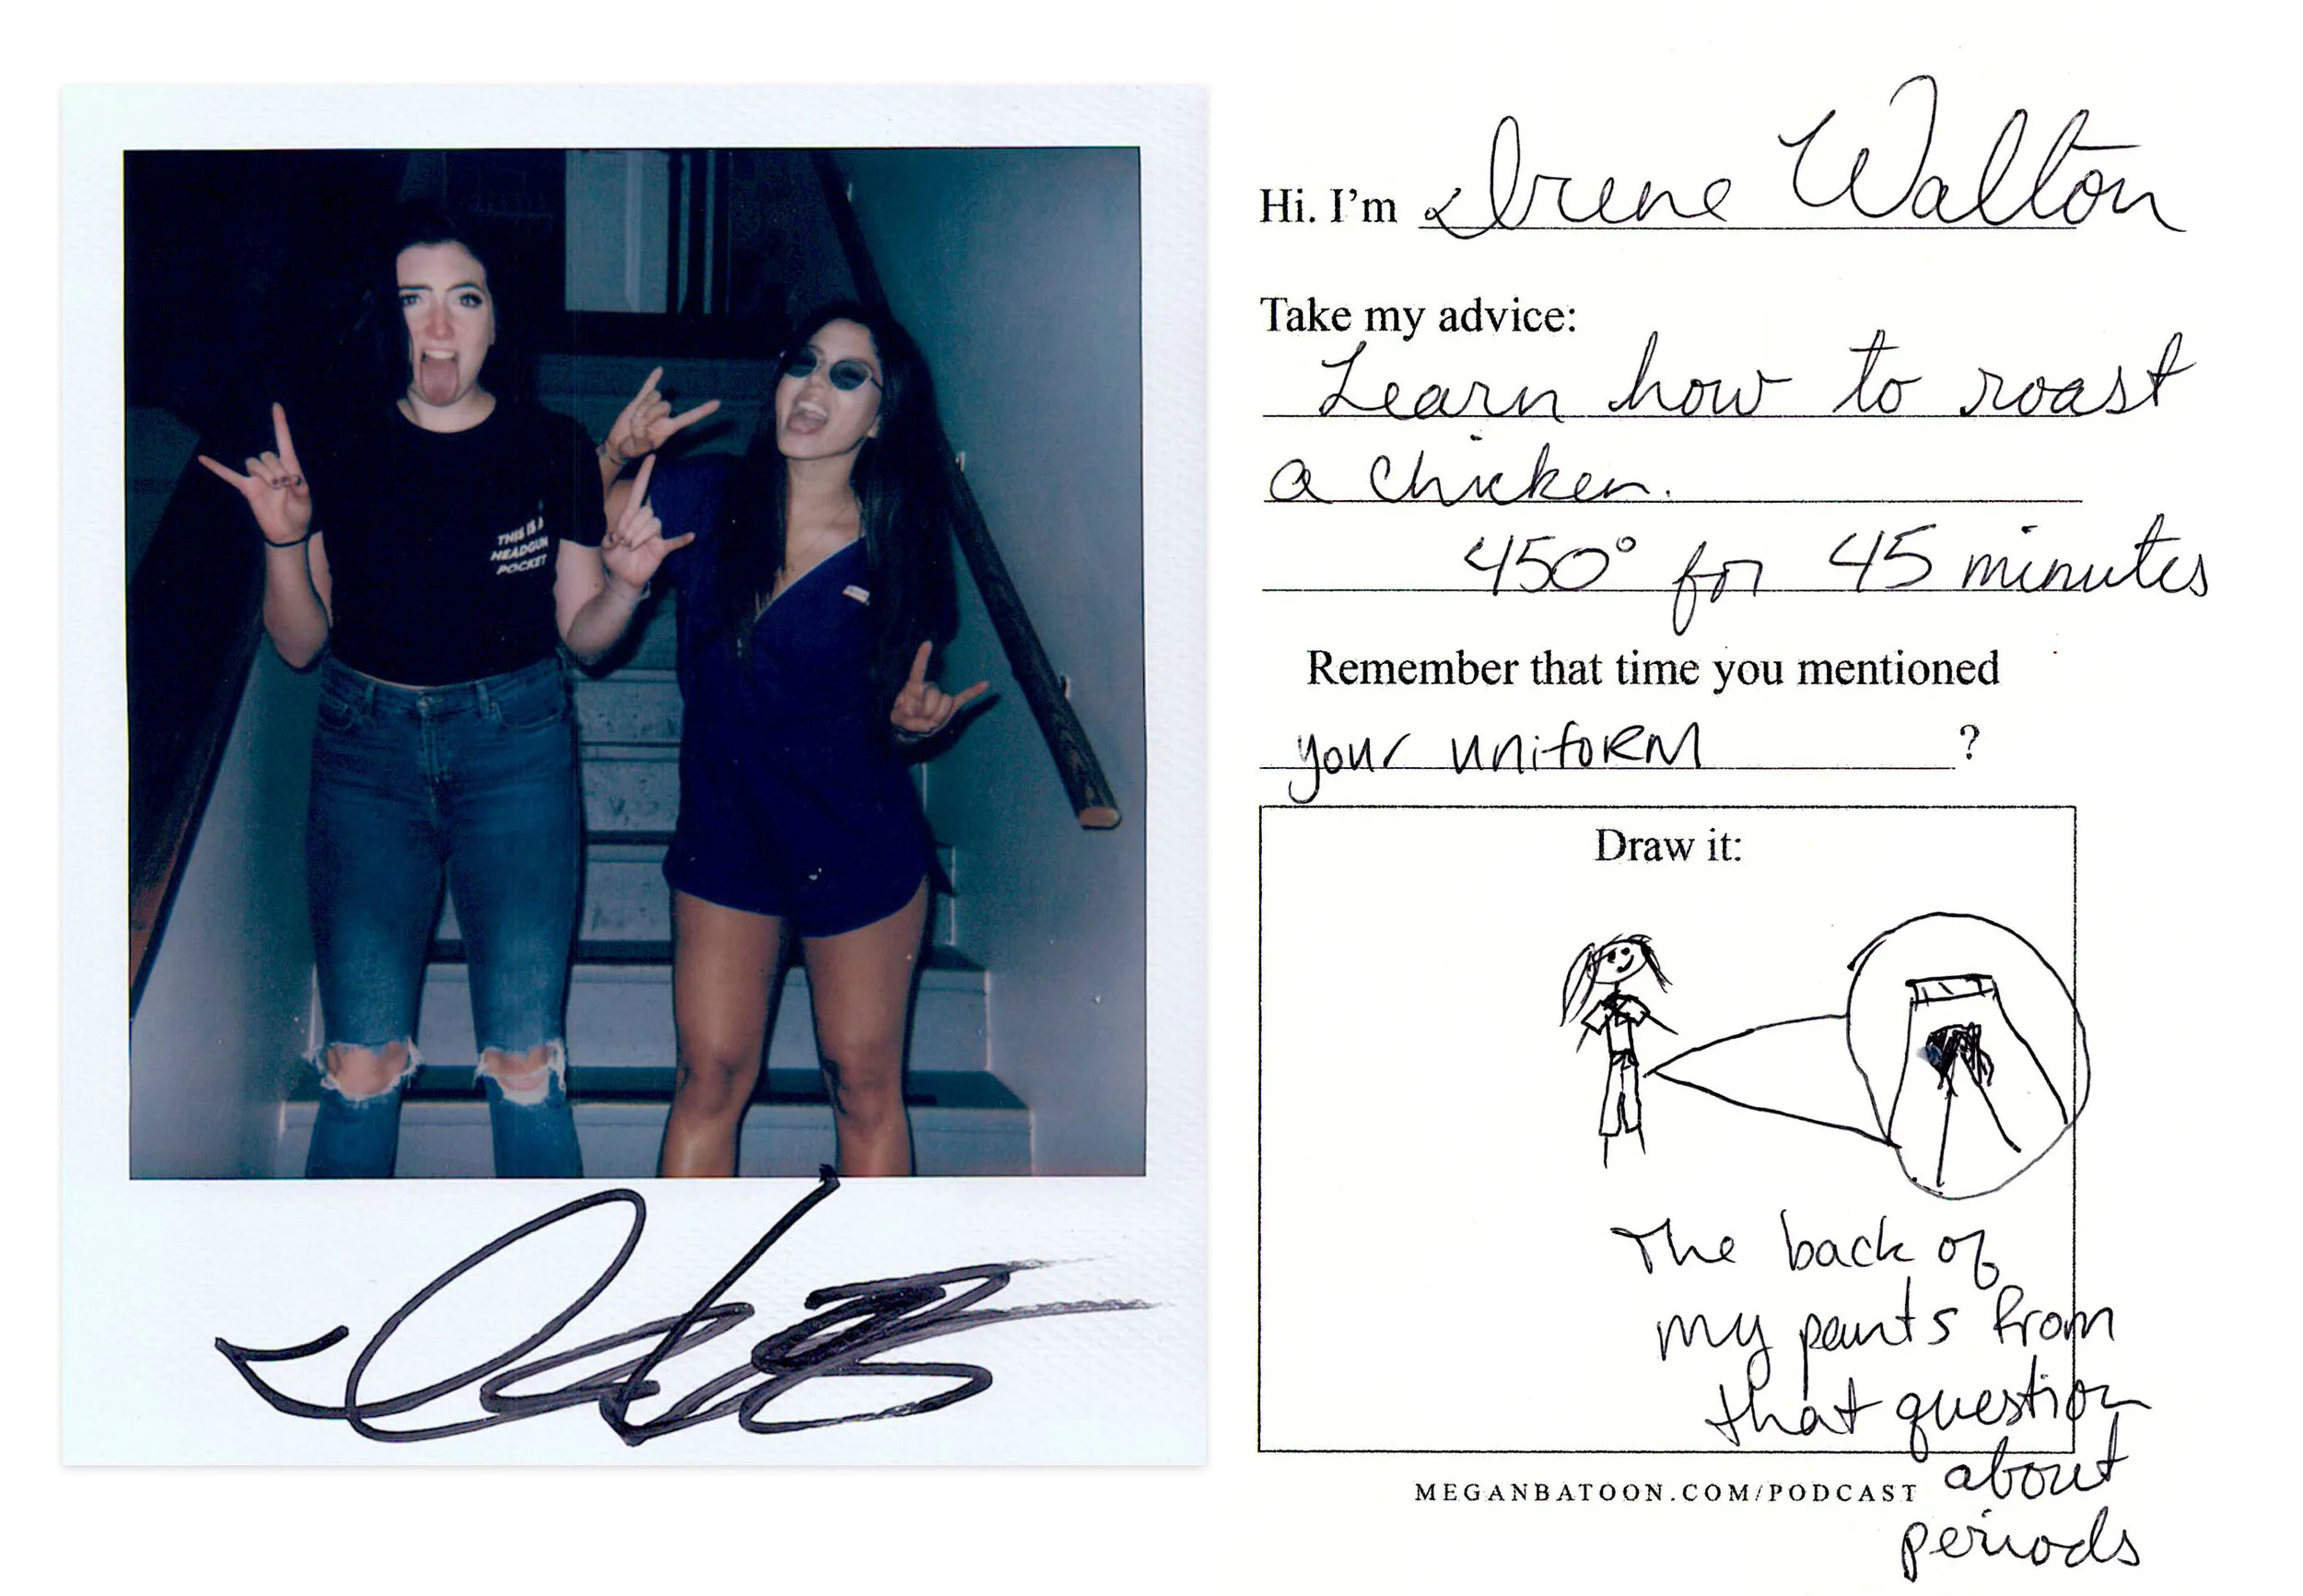 THIS IS A
HEADGUM
POCKET
Hi. I'm Irene Walton
Take my advice:
Learn how to roast
a chicken.
450° for 45 minutes
Remember that time you mentioned
your uniform ?
Draw it:
The back of
my pants from
that question
about
periods
MEGANBATOON.COM/PODCAST